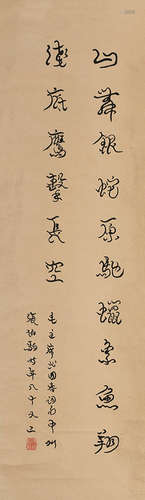 山舞銀蛇原馳蠟象魚翔
淺底鷹擊長空
毛主席沁園春詞句中州
年八十又